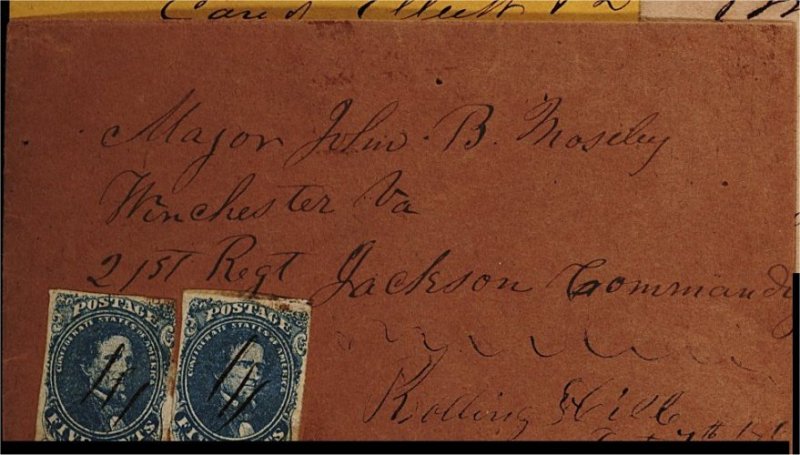 Major John B. Moseley
Winchester Va
21st Regt Jackson Commandy
POSTAGE
CONFEDERATE STATES OF AMERICA
FIVE CENTS
POSTAGE
CONFEDERATE STATES OF AMERICA
Rolling Hill
7th